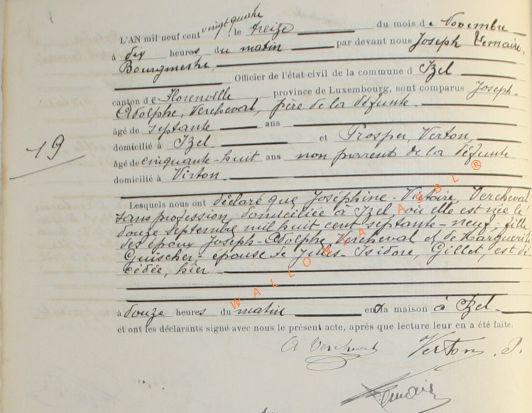 L'AN mil neuf cent vingt quatre, le treize du mois de Novembre
à dix heures du matin par devant nous Joseph Lemaire,
Bourgmestre
Officier de l'état civil de la commune d'Izel
canton de Florenville province de Luxembourg, sont comparus Joseph-
Adolphe, Vercheval, père de la défunte
âgé de septante ans
domicilié à Izel et Prosper, Verton,
âgé de cinquante-huit ans non parent de la défunte
domicilié à Virton
19
Lesquels nous ont déclaré que Joséphine-Victoire, Vercheval
sans profession, domiciliée à Izel où elle est née le
douze septembre mil huit cent septante-neuf, fille
des époux Joseph-Adolphe Vercheval et de Marguerite
épouse de Jules-Isidore, Gillet, est dé
cédée, hier
à douze heures du matin en sa maison à Izel
et ont les déclarants signé avec nous le présent acte, après que lecture leur en a été faite.
A Vercheval Verton. P.
Lemaire
WALLONIA ASBL ®